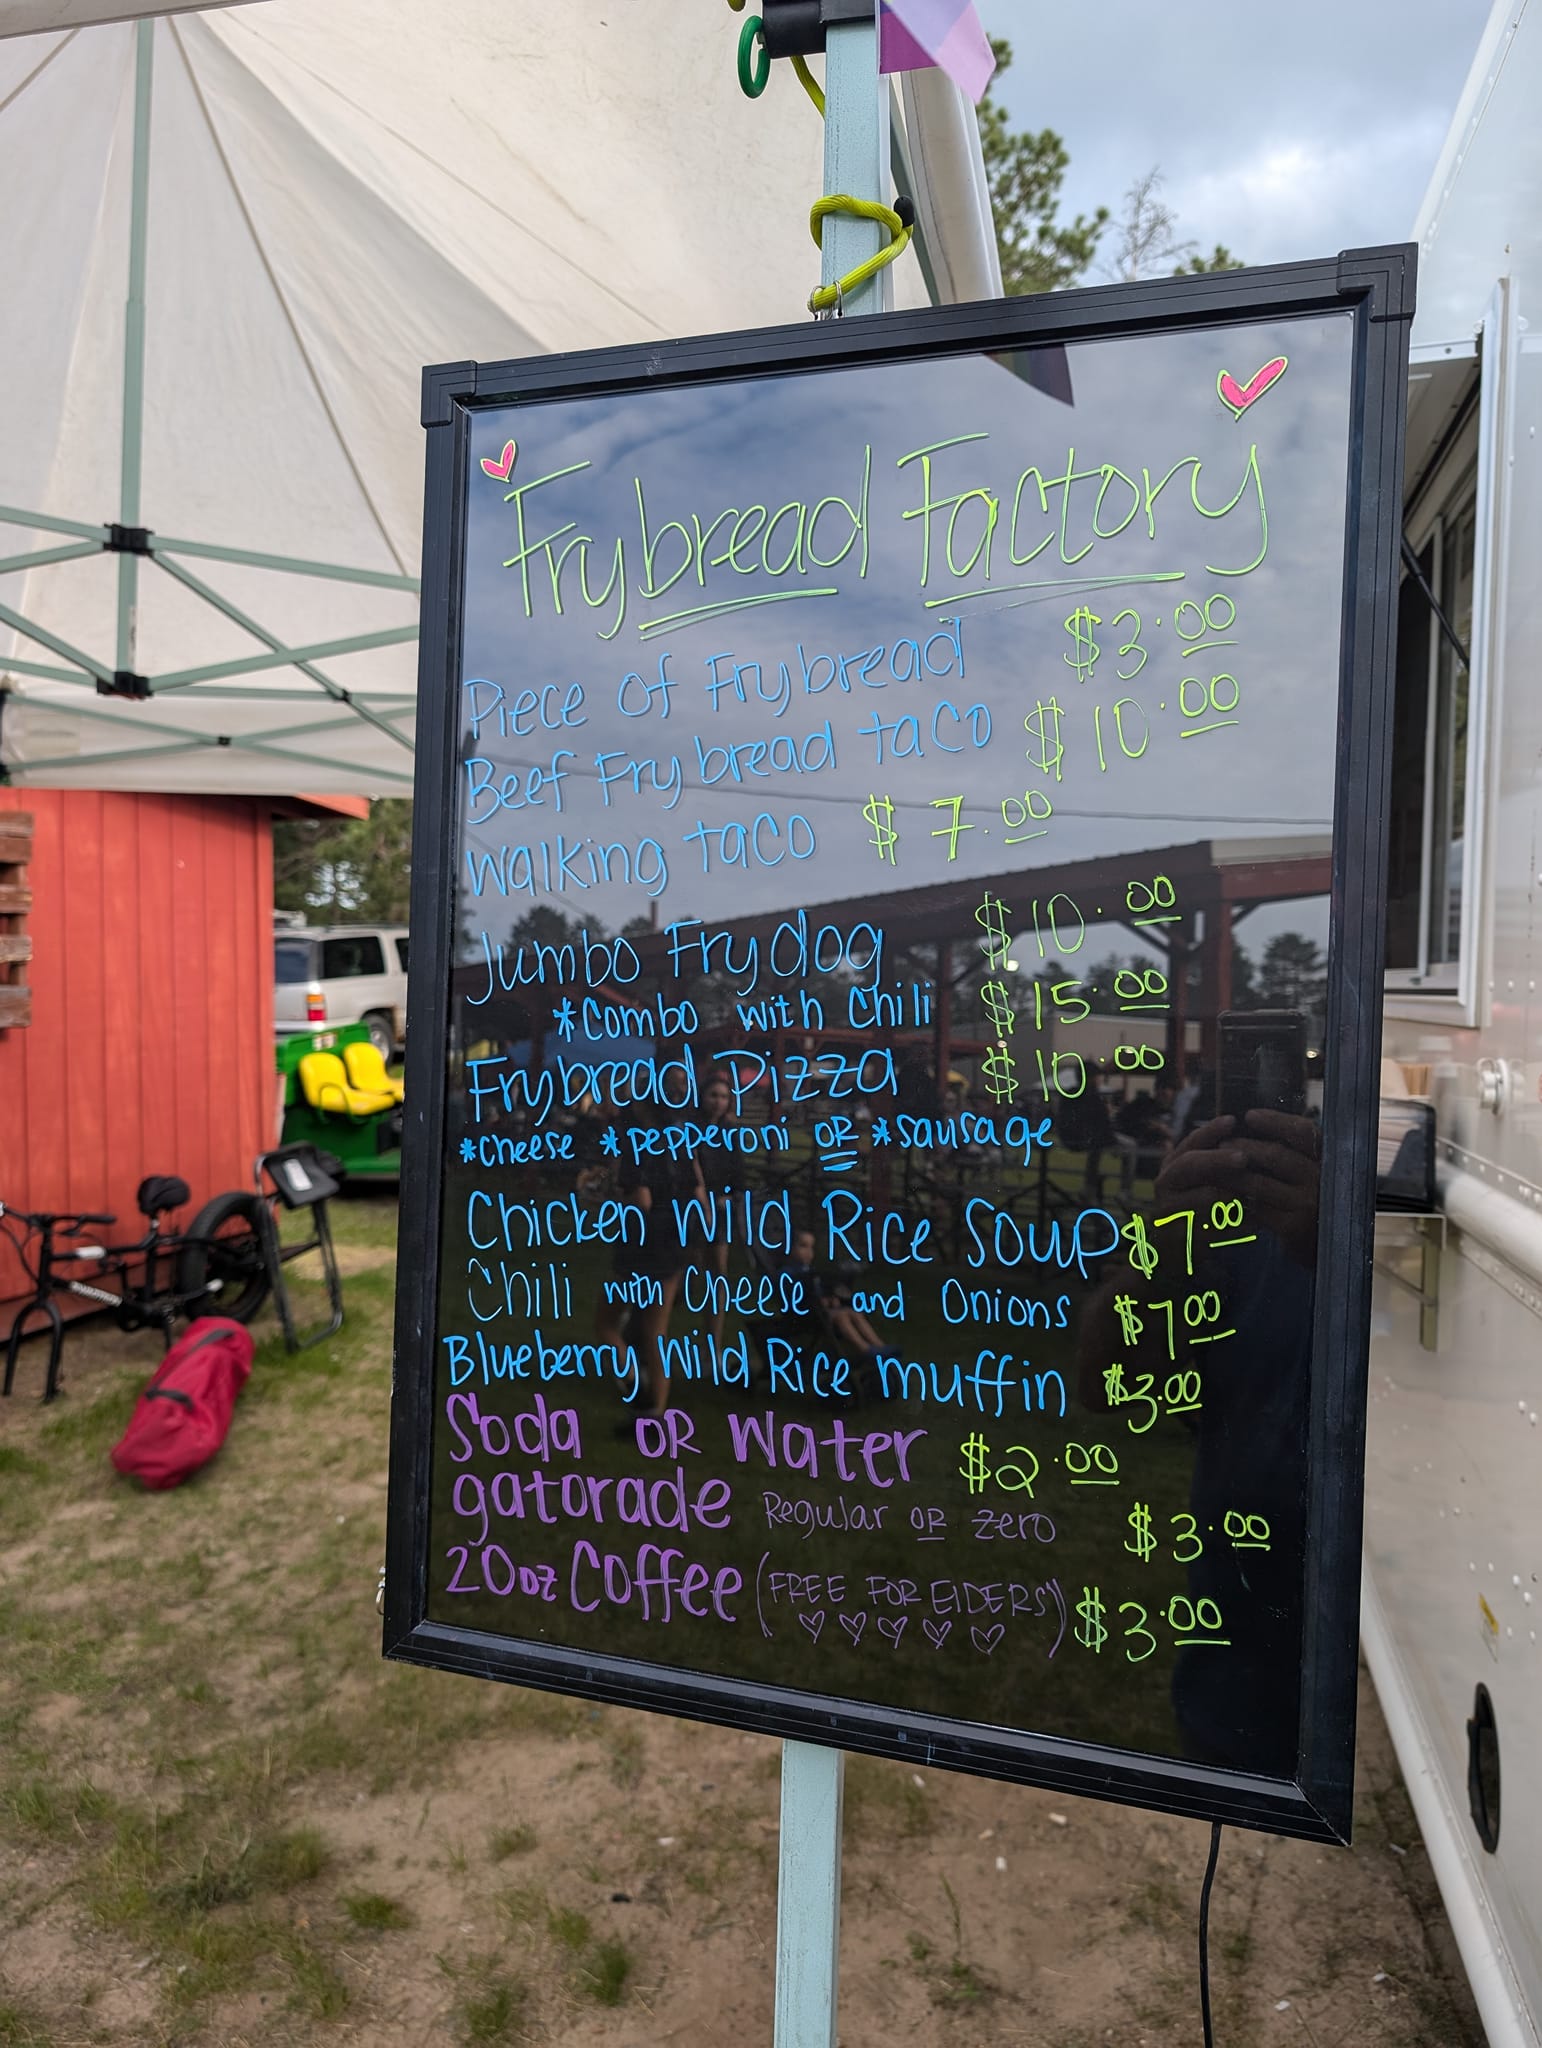 Frybread Factory
Piece of Frybread $3.00
Beef Frybread taco $10.00
Walking taco $7.00
Jumbo Frydog $10.00
*Combo with Chili $15.00
Frybread Pizza $10.00
*Cheese *pepperoni OR *sausage
Chicken Wild Rice Soup $7.00
Chili with Cheese and Onions $7.00
Blueberry Wild Rice muffin $3.00
Soda OR Water $2.00
gatorade Regular OR zero $3.00
20oz Coffee (FREE FOR ElDERS) $3.00